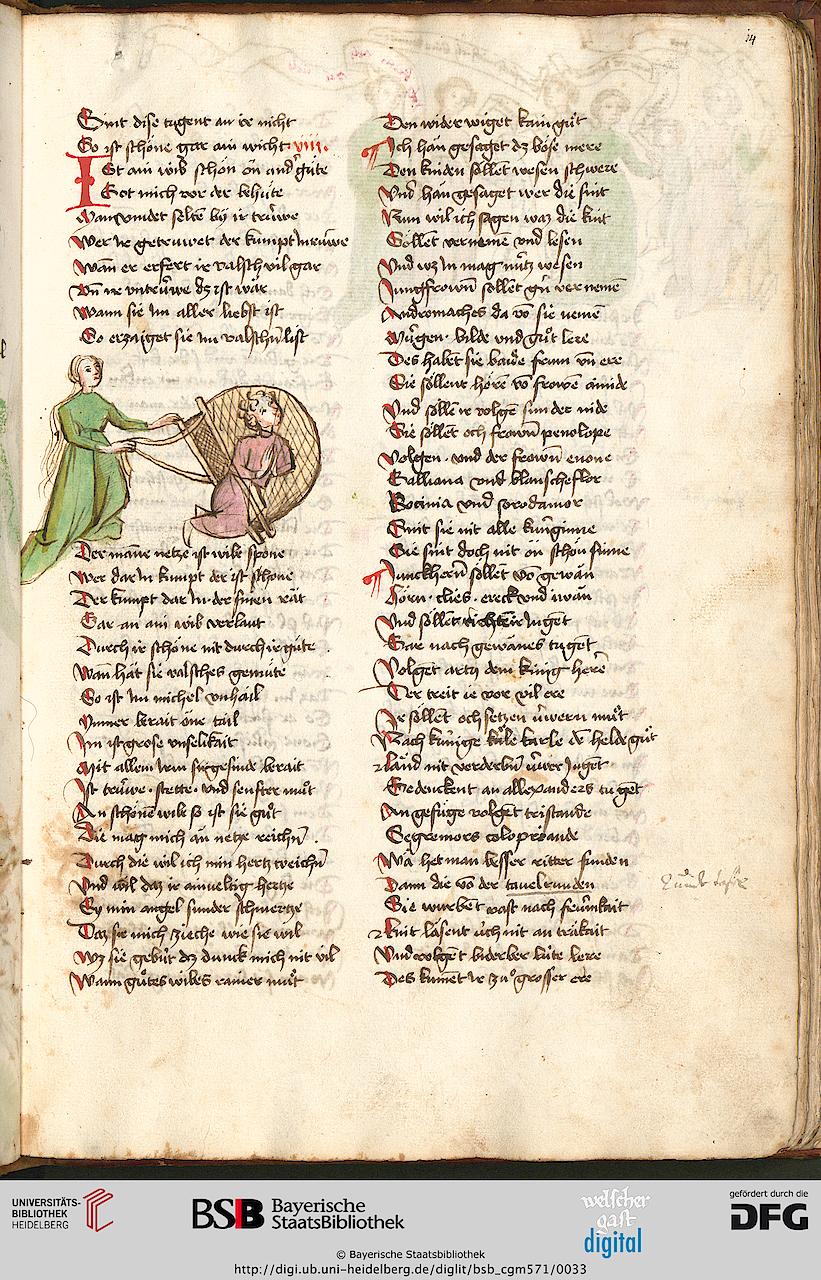 14
Sint dise tugent an ir nicht
So ist schöne gar ain wicht viiii.
Ist ain wib schön ön and' güte
Got mich vor der behüte
Man vindet selten by ir trüwe
Wer ir getruwet der kumpt In rüwe
Wan er erfert ir valsch vil gar
Vn̄ ir vntrüwe dz ist wär
Wann sie Im aller liebst ist
So erzaiget sie Im valschn̄ list
Der manne netze ist wibe schöne
Wer dar In kumpt der ist schone
Der kumpt dar In der sinen rät
Gar an ain wib verlaut
Durch ir schöne nit durch ir güte
Wan hät sie valsches gemüte
So ist Im michel vnhail
Immer berait öne tail
Im ist grose vnselikait
Mit allem Irm Ingesinde berait
Ist trüwe stette vnd senfter müt
An schönem wibe so ist sie güt
Die mag mich än netze reichn̄
Durch die wil ich min hertz weichn̄
Vnd wil daz ir ainueltig hertze
Sy min angel sunder schmertze
Daz sie mich zieche wie sie wil
Wz sie gebüt dz dunck mich nit vil
Wann gütes wibes rainer müt
Den wider wiget kain güt
Ich han gesaget dz böse mere
Den kinden söllet wesen schwere
Vnd han gesaget wer die sint
Nun wil ich sagen waz die kint
Söllet vernemen vnd lesen
Vnd wz In mag nütz wesen
Jungfrown̄ söllet gn̄ vernemen
Andromaches da vo sie nemen
Mügen bilde vnd güt lere
Des habet sie baide frum vn̄ ere
Sie söllent höre vo frowen ainide
Vnd söllen ir volgen sunder nide
Sie söllet och frown̄ penolope
Volgen vnd der frown̄ enone
Galliana vnd blanscheflor
Botinia vnd sorodamor
Sint sie nit alle künginne
Sie sint doch nit ön schön sinne
Junckhern̄ söllet vo gewän
Hörn clies ereck vnd iwän
Vnd söllet richten ir Jugēt
Gar nach gewänes tugēt
Volget artu dem king here
Der treit ie vor vil ere
Ir söllent och setzen üwern müt
Nach künige käle karle de helde güt
Länd nit verderbn̄ üwer Jugēt
Gedenckent an allexanders tugēt
An gefüge volget tristande
Segremors coloprande
Wa het man besser ritter funden
Dann die vo der tauelrunden
Sie wurbent vast nach frümkait
Knit läsent üch nit an träkait
Vnd volget biderber lüte lere
Des kumet Ir zu grosser ere
UNIVERSITÄTS-
BIBLIOTHEK
HEIDELBERG
BSB Bayerische
StaatsBibliothek
welscher
gast
digital
gefördert durch die
DFG
© Bayerische Staatsbibliothek
http://digi.ub.uni-heidelberg.de/diglit/bsb_cgm571/0033